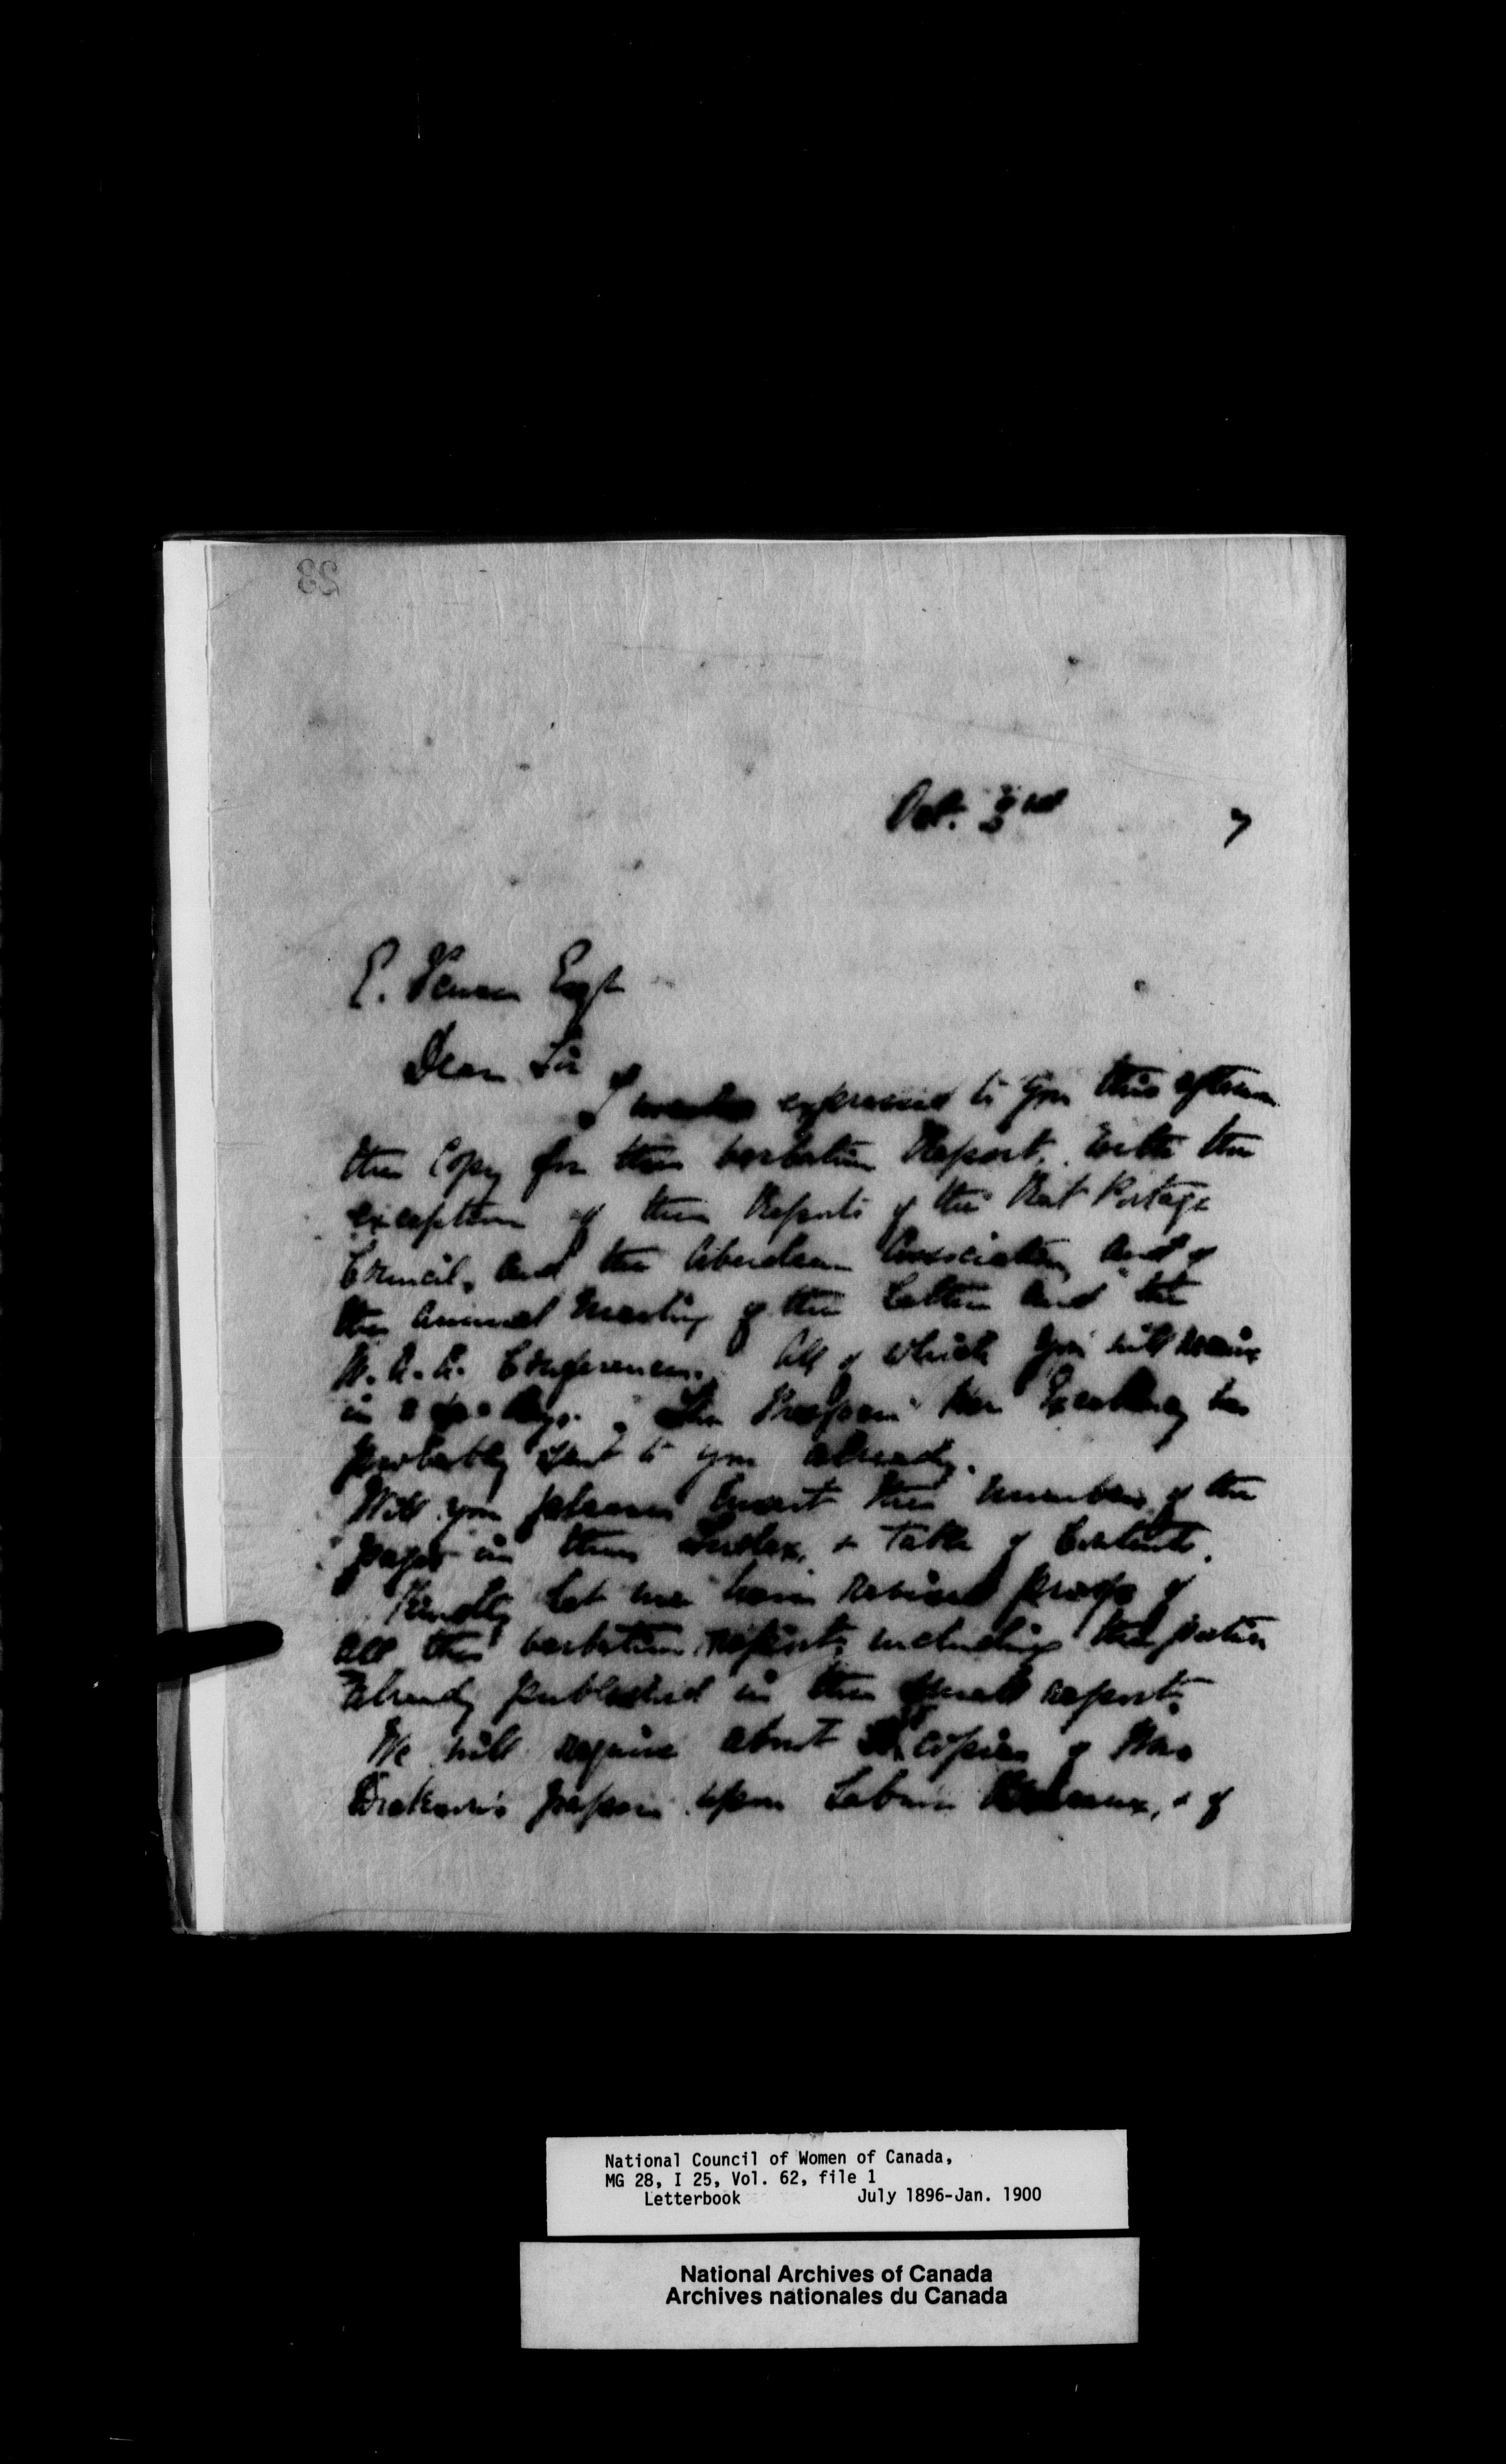 23
Oct. 3rd 7
E. Esqr
Dear Sir
I expressed to you this afternoon
the Copy for the verbatim Report, with the
exception of the Reports of the Rat Portage
Council, and the Aberdeen Association and of
the Annual Meeting of the latter and the
Conference. All of which you will receive
in a days. The Her Excellency has
probably sent to you already.
Will you please insert the numbers of the
pages in the Index, & Table of Contents.
Kindly let me have revised proofs of
all the verbatim report, including the portion
already published in the small report.
We will require about copies of Mrs
paper upon Labour Bureaux, & of
National Council of Women of Canada,
MG 28, I 25, Vol. 62, file 1
Letterbook July 1896-Jan. 1900
National Archives of Canada
Archives nationales du Canada